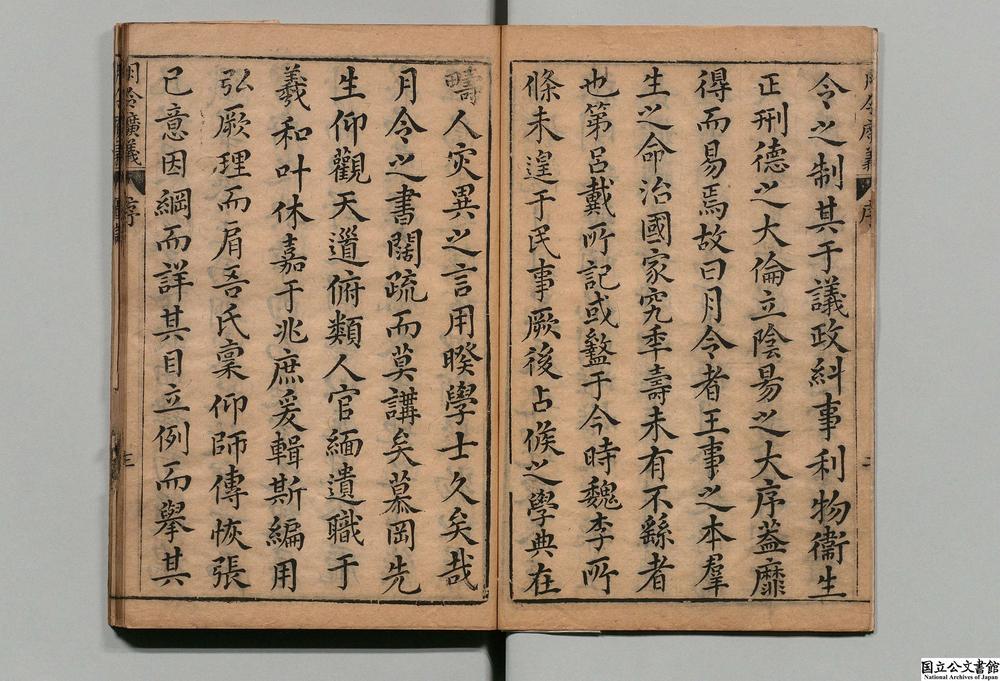 令之制其于議政糾事利物衞生
正刑德之大倫立陰昜之大序葢靡
得而易焉故曰月令者王事之本羣
生之命治國家究年壽未有不繇者
也第呂戴所記或盭于今時魏李所
條未遑于民事厥後占候之學典在
疇人灾異之言用暌學士久矣哉
月令之書闊疏而莫講矣慕岡先
生仰觀天道俯類人官緬遺職于
羲和叶休嘉于兆庶爰輯斯編用
弘厥理而眉吾氏稟仰師傳恢張
已意因綱而詳其目立例而擧其
月令廣義 序
三
国立公文書館
National Archives of Japan